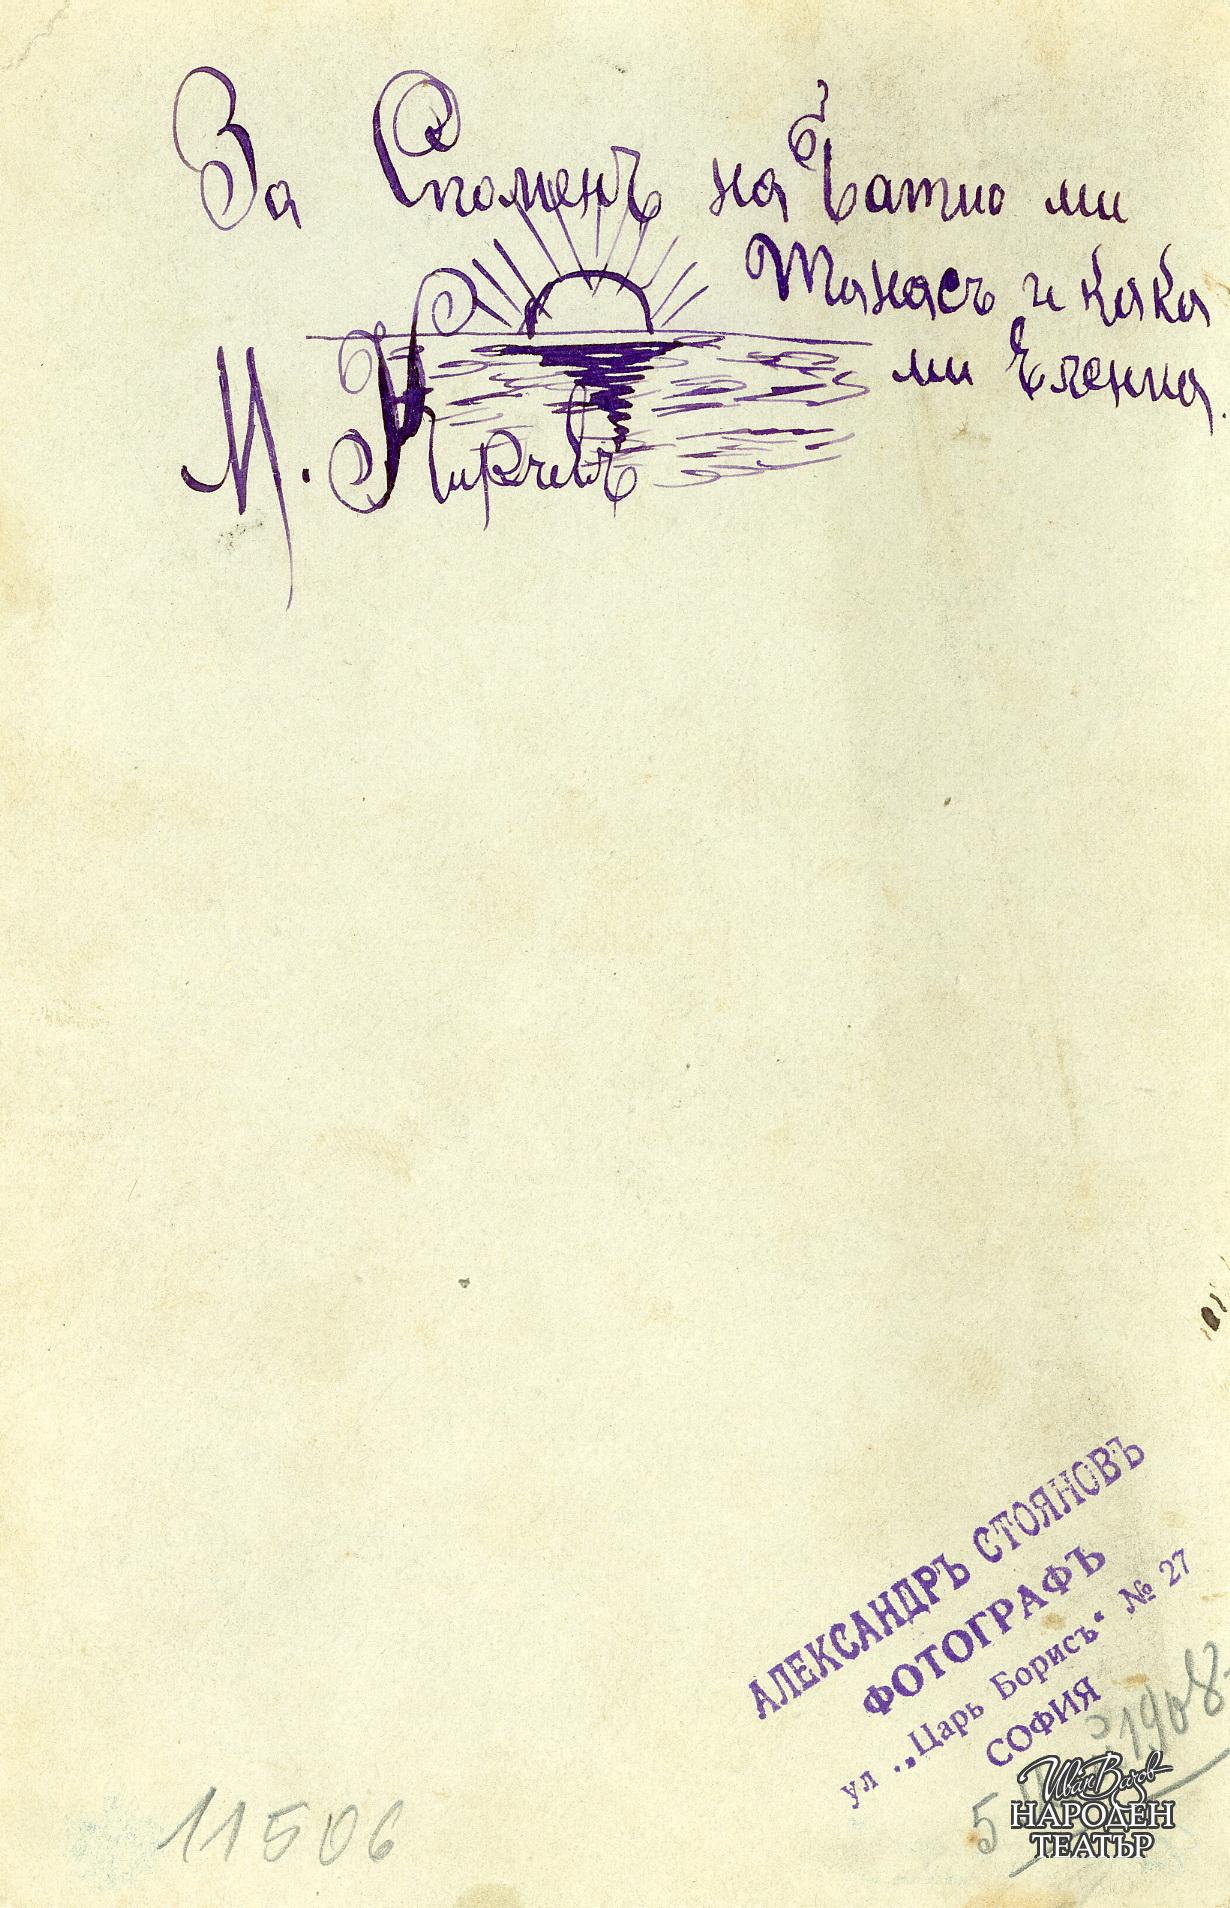 За Споменъ на Батио ми
Танасъ и кака
ми Еленка.
М. Кирчевъ
АЛЕКСАНДРЪ СТОЯНОВЪ
ФОТОГРАФЪ
ул. „Царь Борисъ“ № 27
СОФИЯ
1908
5
11506
Иван Вазов
НАРОДЕН
ТЕАТЪР